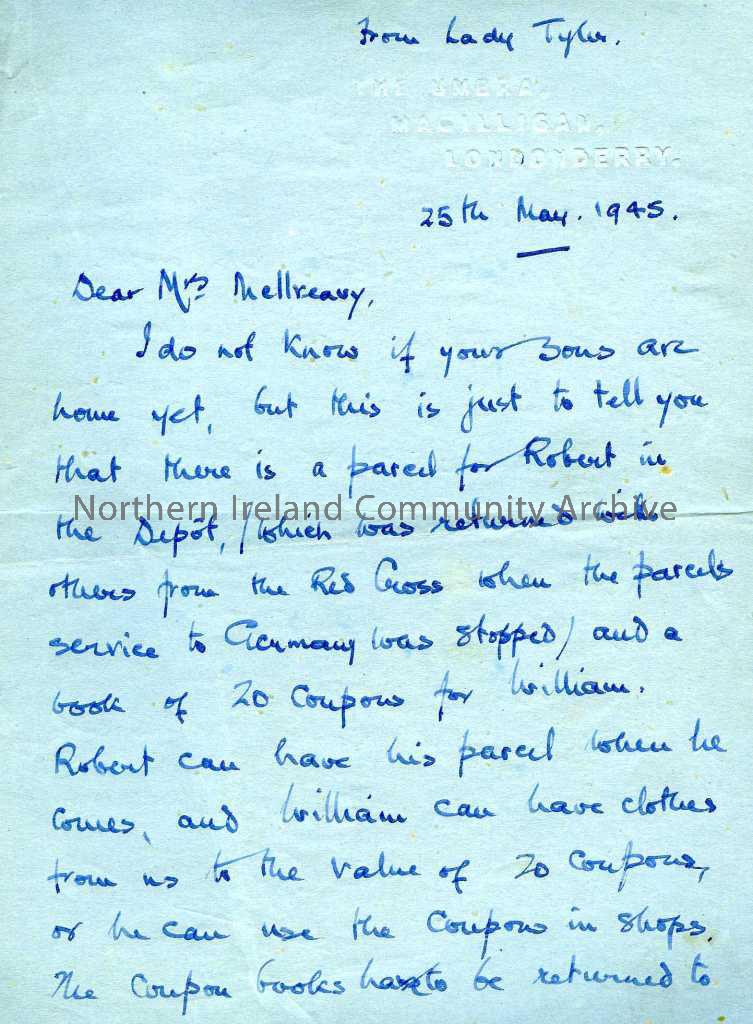 From Lady Tyler.
THE UMBRA,
MAGILLIGAN,
LONDONDERRY.
25th May. 1945.
Dear Mrs McIlreavy,
I do not know if your sons are
home yet, but this is just to tell you
that there is a parcel for Robert in
Northern Ireland Community Archive
the Depôt, (which was returned with
others from the Red Cross when the parcels
service to Germany was stopped) and a
book of 20 coupons for William.
Robert can have his parcel when he
comes, and William can have clothes
from us to the value of 20 coupons,
or he can use the coupons in shops.
The coupon books have to be returned to